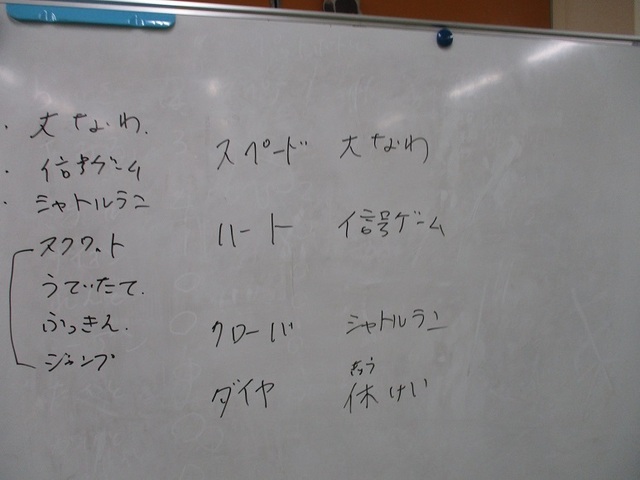 ・大なわ.
・信号ゲーム
・シャトルラン
スクワット
うでたて.
ふっきん.
ジャンプ
スペード 大なわ
ハート 信号ゲーム
クローバ シャトルラン
きゅう
ダイヤ 休けい